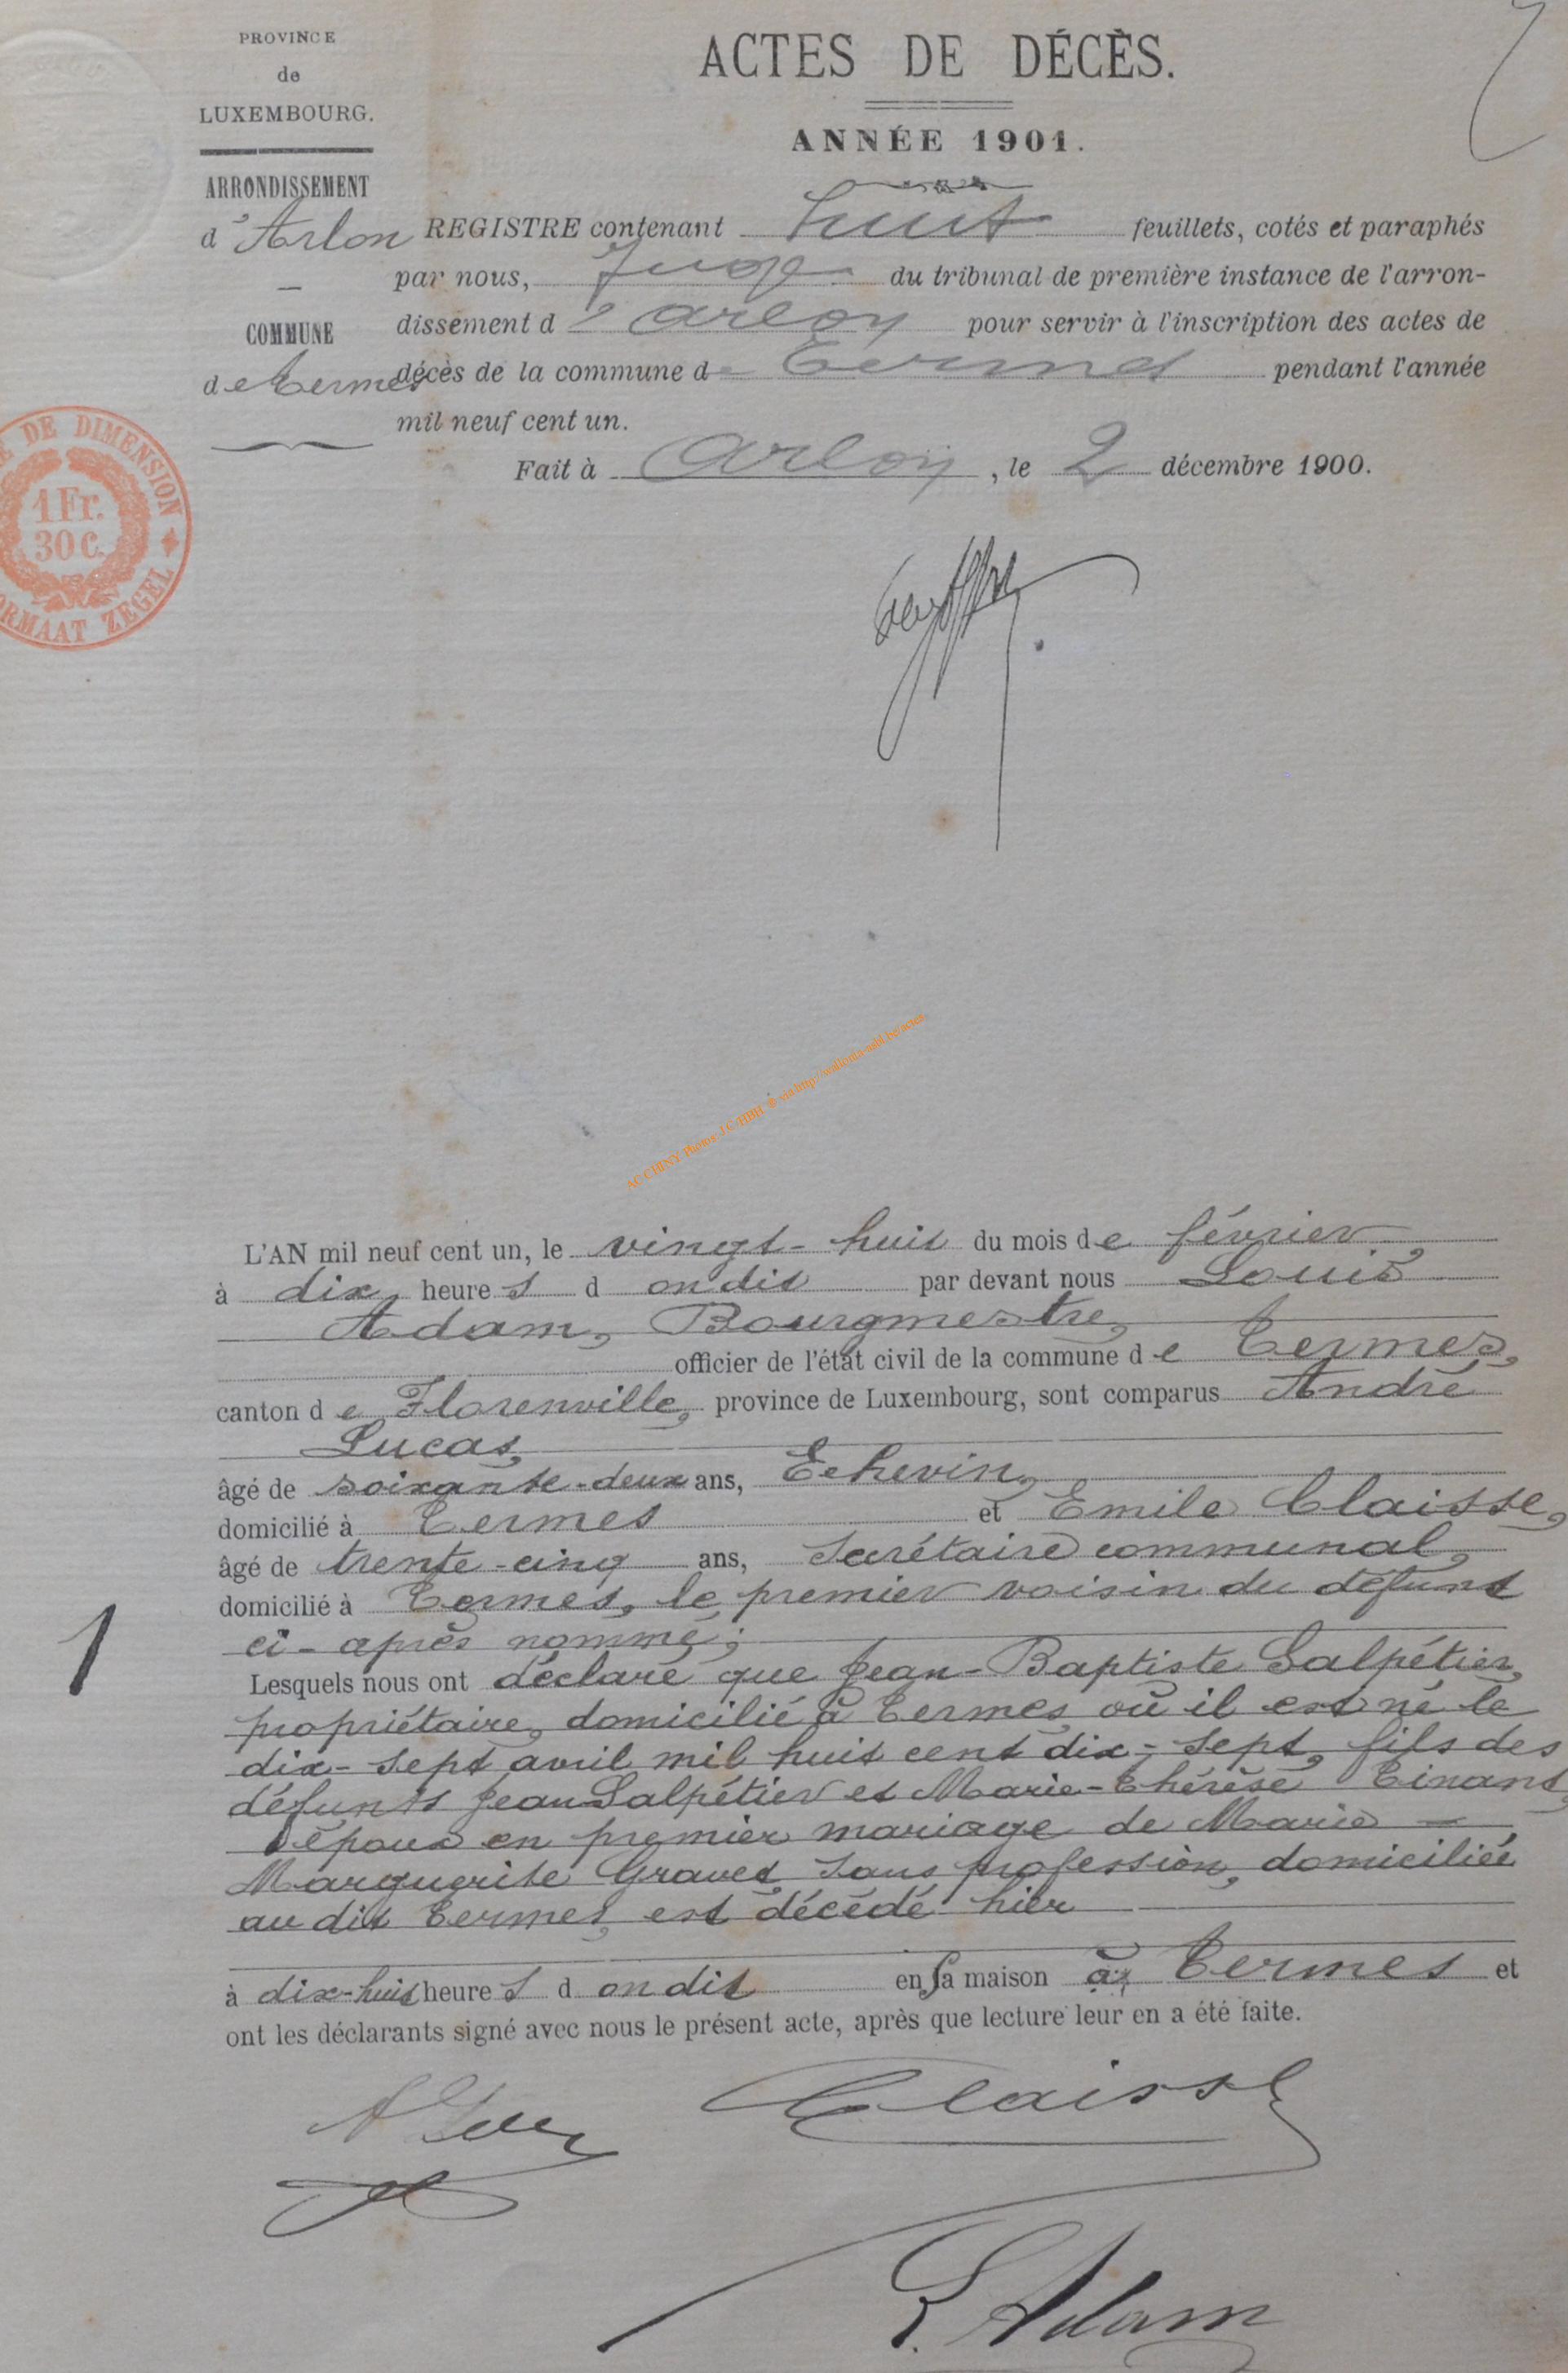 PROVINCE
de
LUXEMBOURG.
ARRONDISSEMENT
d'Arlon
COMMUNE
de Termes
ACTES DE DÉCÈS.
ANNÉE 1901.
REGISTRE contenant huit feuillets, cotés et paraphés
par nous, Juge du tribunal de première instance de l'arron-
dissement d'Arlon pour servir à l'inscription des actes de
décès de la commune de Termes pendant l'année
mil neuf cent un.
Fait à Arlon, le 2 décembre 1900.
DE DIMENSION
1 Fr.
30 C.
FORMAAT ZEGEL
AC CHINY Photos J.C. HBH © via http://wallonia-asbl.be/actes
L'AN mil neuf cent un, le vingt-huit du mois de février
à dix heures d ondit par devant nous Louis
Adam, Bourgmestre,
officier de l'état civil de la commune de Termes,
canton de Florenville, province de Luxembourg, sont comparus André
Lucas,
âgé de soixante-deux ans, Echevin,
domicilié à Termes et Emile Claisse,
âgé de trente-cinq ans, Secrétaire communal,
domicilié à Termes, le premier voisin du défunt
ci-après nommé;
1
Lesquels nous ont déclaré que Jean-Baptiste Salpétier,
propriétaire, domicilié à Termes où il est né le
dix-sept avril mil huit cent dix-sept, fils des
défunts Jean Salpétier et Marie-Thérèse Tinant,
époux en premier mariage de Marie-
Marguerite Graves, sans profession, domiciliée
au dit Termes, est décédé hier
à dix-huit heures d ondit en sa maison à Termes et
ont les déclarants signé avec nous le présent acte, après que lecture leur en a été faite.
Claisse
L. Adam